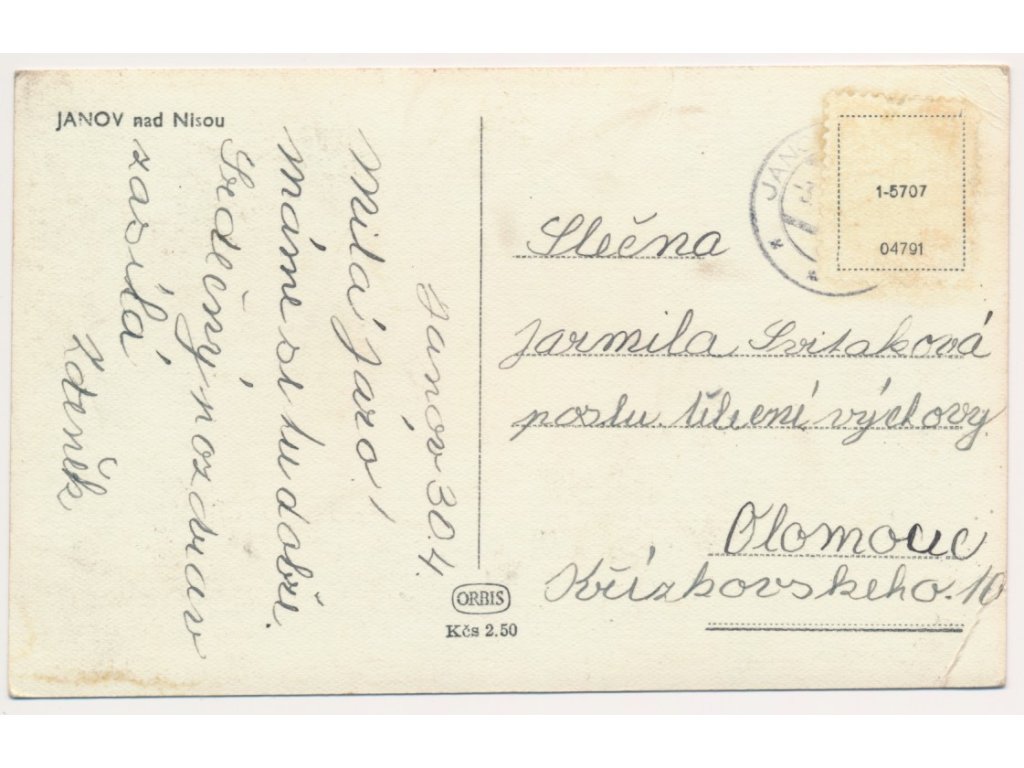 JANOV nad Nisou
Janov 30.4.
Milá Jaro!
máme se tu dobře.
Srdečný pozdrav
zasílá
Zdeněk
ORBIS
Kčs 2.50
JANO
1-5707
04791
Slečna
Jarmila Svitaková
poslu. tělesné výchovy
Olomouc
Křížkovského. 10